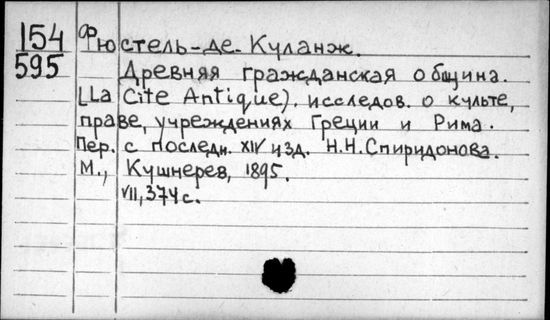 154
595
Фюстель-де-Куланж.
Древняя гражданская община.
(La Cite Antique). исследов. о культе,
праве, учреждениях Греции и Рима.
Пер. с последн. XIV изд. Н.Н.Спиридонова.
М., Кушнерев, 1895.
VII, 374 с.